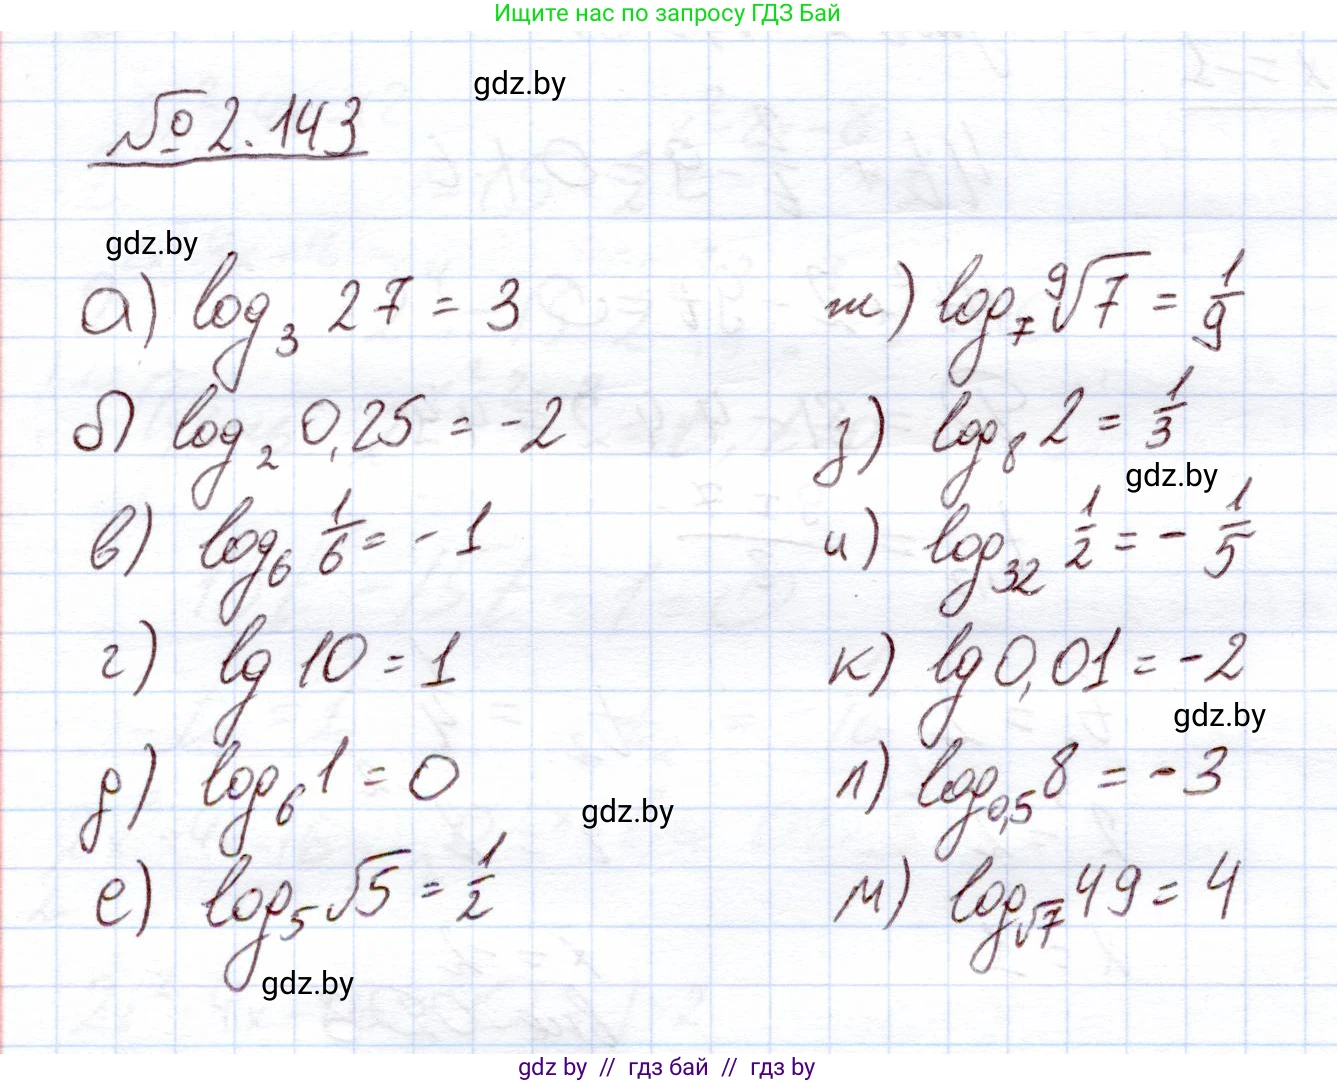 Ищите нас по запросу ГДЗ Бай
gdz.by
№ 2.143
gdz.by
а) log₃ 27 = 3
б) log₂ 0,25 = -2
в) log₆ 1/6 = -1
г) lg 10 = 1
д) log₆ 1 = 0
gdz.by
е) log₅ √5 = 1/2
gdz.by
ж) log₇ ⁹√7 = 1/9
з) log₈ 2 = 1/3
gdz.by
и) log₃₂ 1/2 = - 1/5
к) lg 0,01 = -2
gdz.by
л) log₀,₅ 8 = -3
м) log_√7 49 = 4
gdz by // гдз бай // gdz by